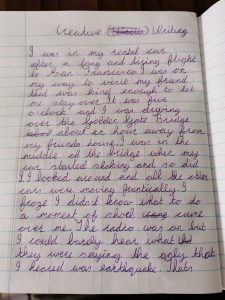 Creative Writing
I was in my rental car
after a long and tiring flight
to San Fransisco I was on
my way to visit my friend
that was kind enough to let
me stay over. It was five
o'clock and I was driving
over the Golden Gate Bridge
about an hour away from
my friends house. I was in the
middle of the bridge when my
car started shaking and so did
I. I looked around and all the other
cars were moving frantically. I
froze I didn't know what to do
a moment of shock came
over me. The radio was on but
I could barely hear what
they were saying the only that
I heared was earthquake. Thats